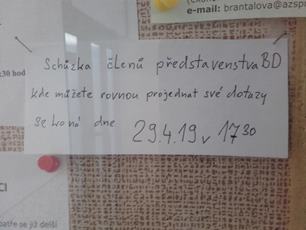 e-mail: brantalova@azsp
:30 hod
Schůzka členů představenstva BD
kde můžete rovnou projednat své dotazy
se koná dne 29.4.19 v 17 30
CI
patře se již delší